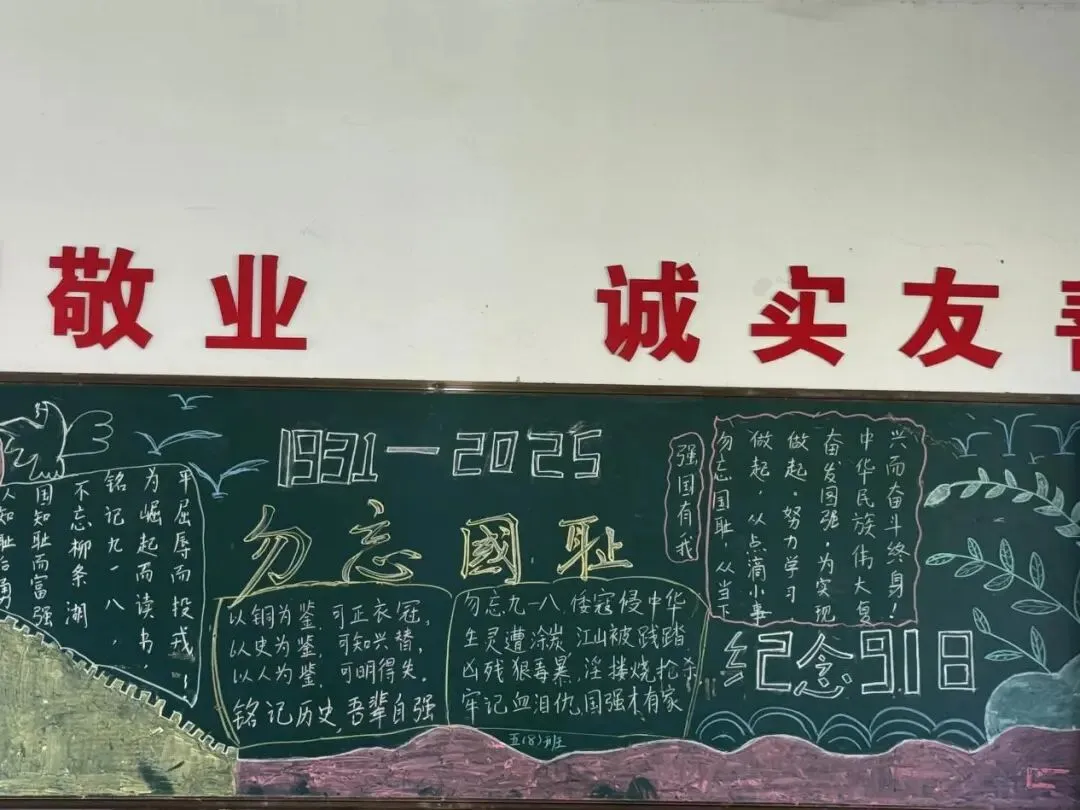 敬业 诚实友善
人知耻后勇
国知耻而富强
不忘柳条湖
铭记九一八，
为崛起而读书，
平屈辱而投戎！
1931—2025
勿忘國耻
以铜为鉴，可正衣冠，
以史为鉴，可知兴替，
以人为鉴，可明得失。
铭记历史，吾辈自强
勿忘九一八，倭寇侵中华
生灵遭涂炭，江山被践踏
凶残狠毒暴，淫搂烧抢杀
牢记血泪仇，国强才有家
五(8)班
强国有我
勿忘国耻，从当下
做起，从点滴小事
做起。努力学习，
奋发图强。为实现
中华民族伟大复
兴而奋斗终身！
纪念918